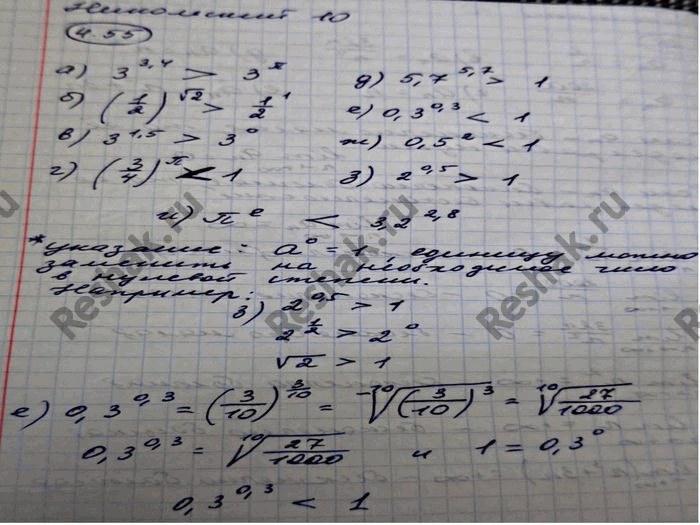 Никольский 10
4.55
а) 3^3,4 > 3^π д) 5,7^5,7 > 1
б) (1/2)^√2 > 1/2^1 е) 0,3^0,3 < 1
в) 3^1,5 > 3^0 ж) 0,5^2 < 1
г) (3/4)^π < 1 з) 2^0,5 > 1
и) π^e < 3,2^2,8
*указание: a^0 = 1, единицу можно
заменить на необходимое число
в нулевой степени.
Например:
з) 2^0,5 > 1
2^1/2 > 2^0
√2 > 1
е) 0,3^0,3 = (3/10)^3/10 = ¹⁰√(3/10)^3 = ¹⁰√27/1000
0,3^0,3 = ¹⁰√27/1000 и 1 = 0,3^0
0,3^0,3 < 1
Reshak.ru
Reshak.ru
Reshak.ru